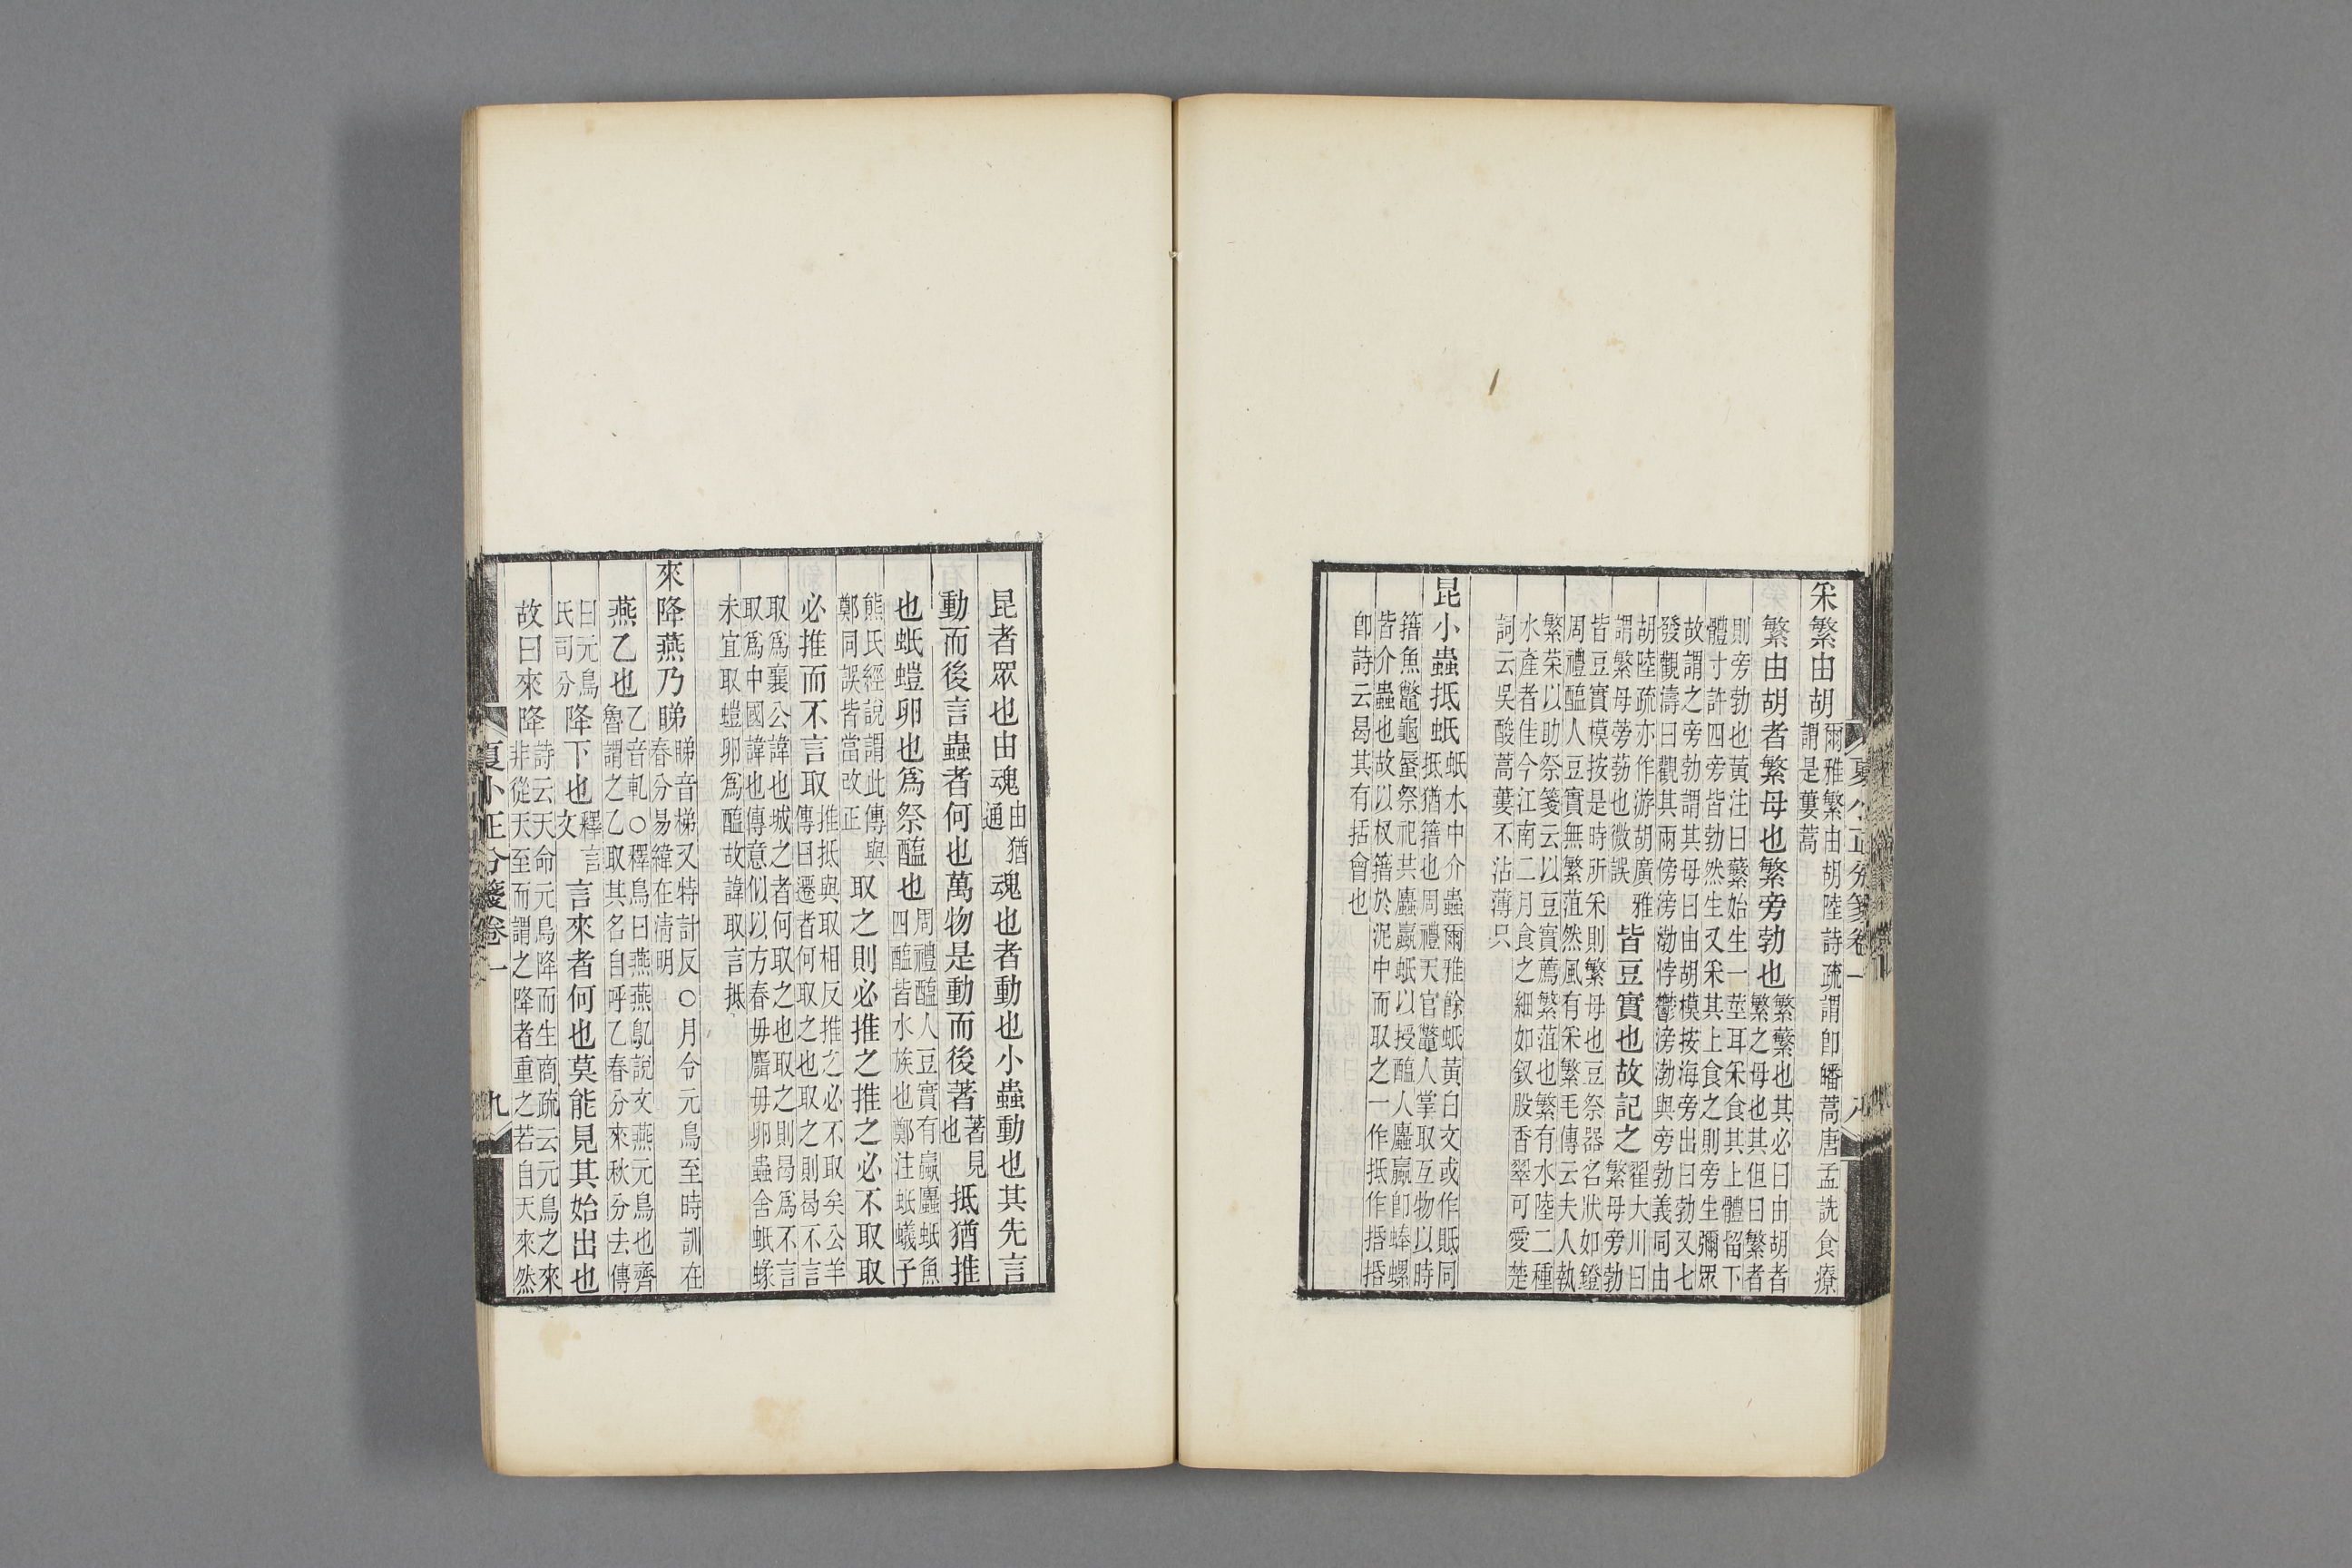 采繁由胡爾雅繁由胡陸詩疏謂卽皤蒿唐孟詵食療
謂是蔞蒿
繁由胡者繁母也繁旁勃也繁蘩也其必曰由胡者
繁之母也其但曰繁者
則旁勃也黃注曰蘩始生一莖耳采食其上體留下
體寸許四旁皆勃然生又采其上食之則旁生彌眾
故謂之旁勃謂其母曰由胡模按海旁出曰勃又七
發觀濤曰觀其兩傍滂渤怫鬱滂渤與旁勃義同由
胡陸疏亦作游胡廣雅
謂繁母蒡葧也微誤皆豆實也故記之翟大川曰
繁母旁勃
皆豆實模按是時所采則繁母也豆祭器名狀如鐙
周禮醢人豆實無繁菹然風有采繁毛傳云夫人執
繁菜以助祭箋云以豆實薦繁菹也繁有水陸二種
水產者佳今江南二月食之細如釵股香翠可愛楚
詞云吳酸蒿蔞不沾薄只
昆小蟲抵蚳蚳水中介蟲爾雅餘蚳黃白文或作貾同
抵猶籍也周禮天官鼈人掌取互物以時
籍魚鼈龜蜃祭祀共蠯蠃蚳以授醢人蠯蠃卽蜯螺
皆介蟲也故以杈籍於泥中而取之一作抵作捪捪
卽詩云曷其有括會也
夏小正分箋卷一
八
昆者眾也由魂由猶
通魂也者動也小蟲動也其先言
動而後言蟲者何也萬物是動而後著著見
也抵猶推
也蚳螘卵也爲祭醢也周禮醢人豆實有蠃蠯蚳魚
四醢皆水族也鄭注蚳蟻子
熊氏經說謂此傳與
鄭同誤皆當改正取之則必推之推之必不取取
必推而不言取推抵與取相反推之必不取矣公羊
傳曰遷者何取之也取之則曷不言
取爲襄公諱也城之者何取之也取之則曷爲不言
取爲中國諱也傳意似以方春毋麛毋卵蟲舍蚳蝝
未宜取螘卵爲醢故諱取言抵
來降燕乃睇睇音梯又特計反○月令元鳥至時訓在
春分易緯在清明
燕乙也乙音軋○釋鳥曰燕燕鳦說文燕元鳥也齊
魯謂之乙取其名自呼乙春分來秋分去傳
曰元鳥
氏司分降下也釋言
文言來者何也莫能見其始出也
故曰來降詩云天命元鳥降而生商疏云元鳥之來
非從天至而謂之降者重之若自天來然
夏小正分箋卷一
九